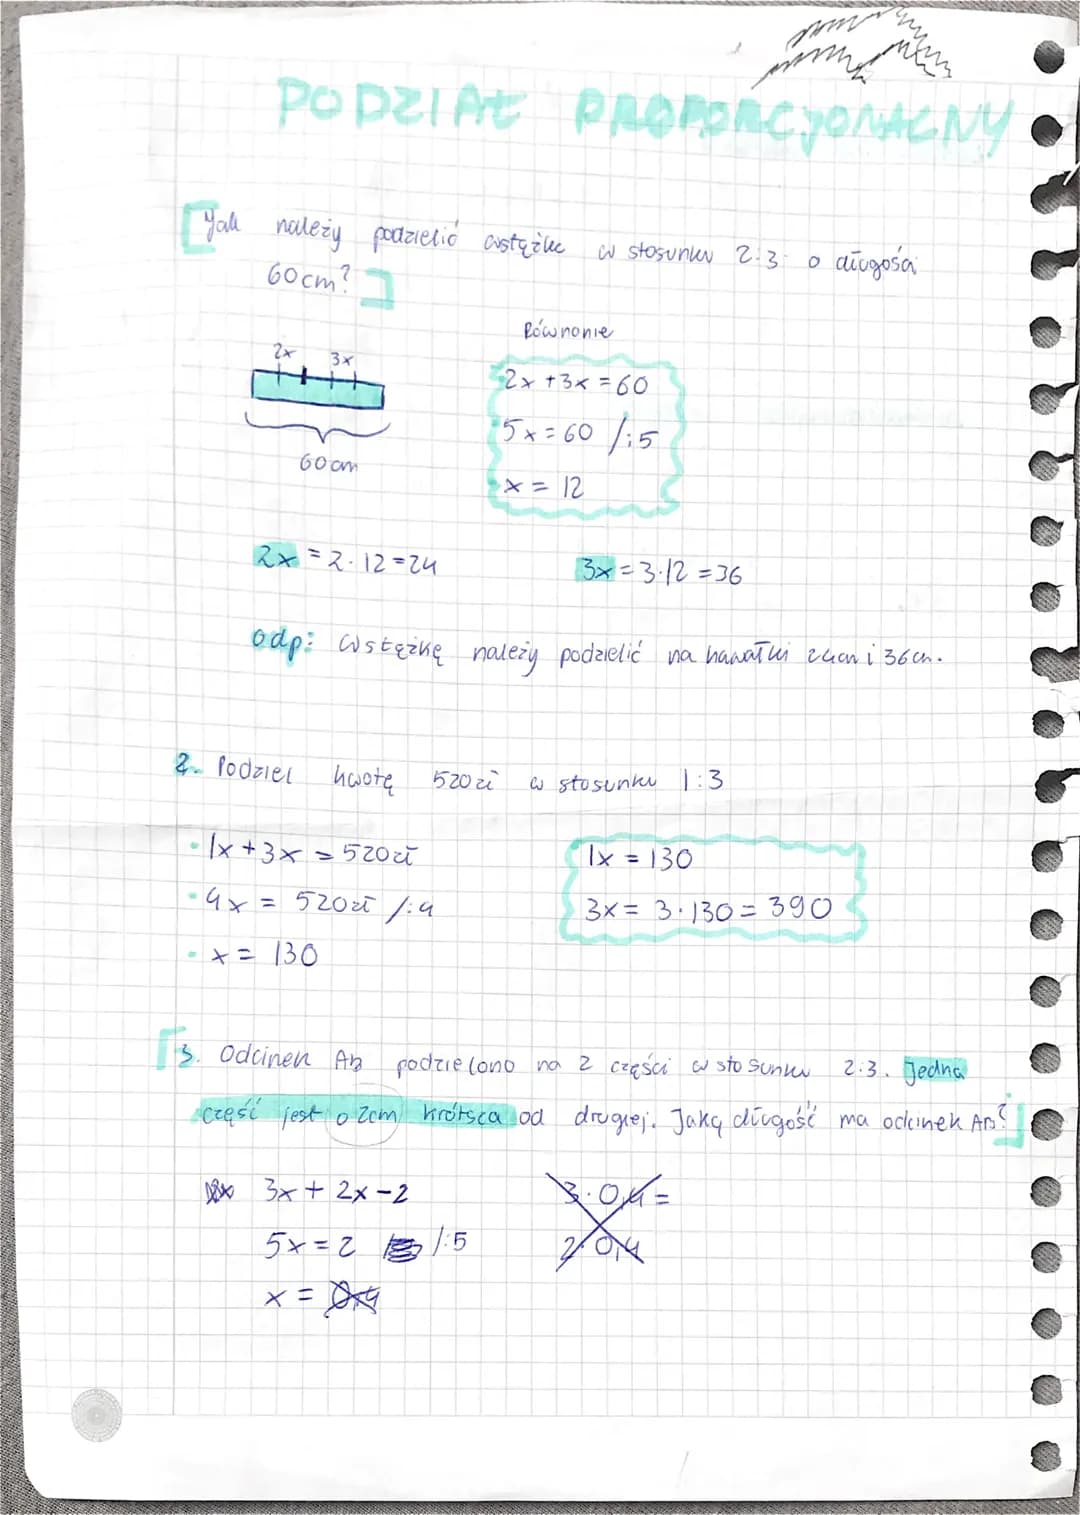 PODZIAŁ PROPORCJONALNY
Jak należy podzielić wstążkę w stosunku 2:3 o długości
60cm?
Równanie
2x 3x
2x+3x=60
5x=60 /:5
60cm
x=12
2x=2·12=24 3x=3·12=36
odp: Wstążkę należy podzielić na kawałki 24cm i 36cm.
2. Podziel kwotę 520zł w stosunku 1:3
1x+3x=520zł 1x=130
4x=520zł /:4 3x=3·130=390
x=130
3. Odcinek AB podzielono na 2 części w stosunku 2:3. Jedna
część jest o 2cm krótsza od drugiej. Jaką długość ma odcinek AB?
3x+2x-2 3·0,4=
5x=2 /:5 2·0,4
x=0,4